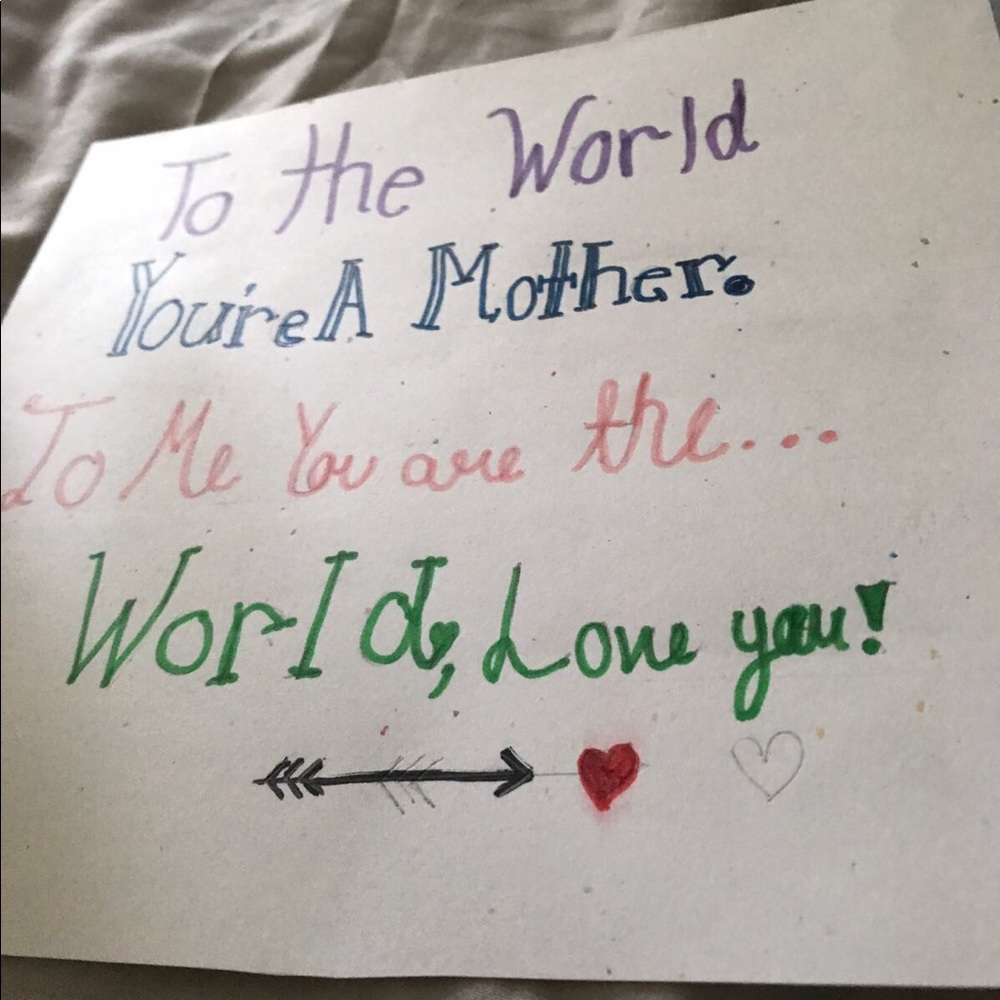 To the World
You're A Mother.
To Me You are the...
World, Love you!